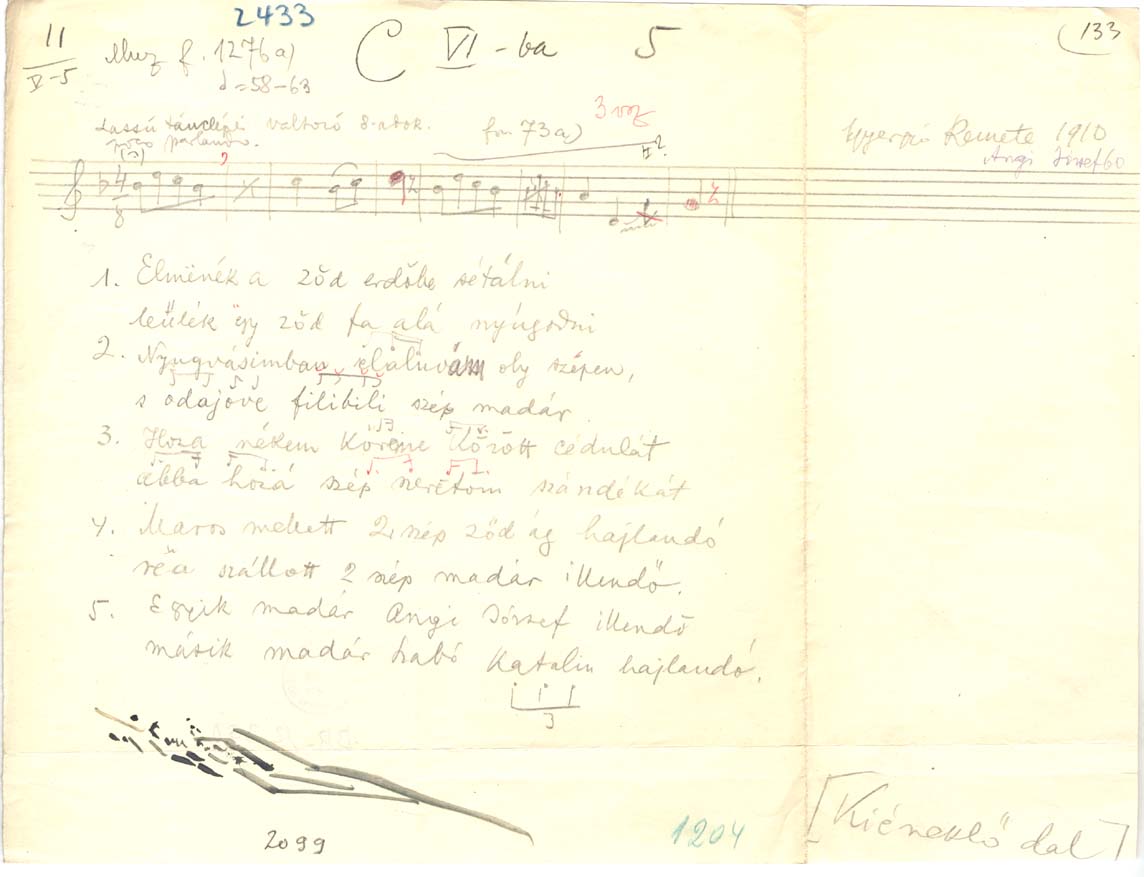 2433
11
V-5
Muz f. 1276a)
C VI-ba 5
133
♩=58-63
3 vsz
Lassú tánclépés változó 8-adok.
fm 73a)
poco parlando.
II?
Gyergyó Remete 1910
Angi József 60
4
8
1. Elmënék a ződ erdőbe sétálni
leülék ëgy ződ fa alá nyúgodni
2. Nyugvásimban elaluvám oly szépen,
s odajöve filibili szép madár
3. Hoza nékem körme között cédulát
abba hozá szép szeretőm szándékát
4. Maros mellett 2 szép ződ ág hajlandó
rëa szállott 2 szép madár illendő.
5. Egyik madár Angi József illendő
másik madár Szabó Katalin hajlandó.
3
2099
1204
[Kiéneklő dal]